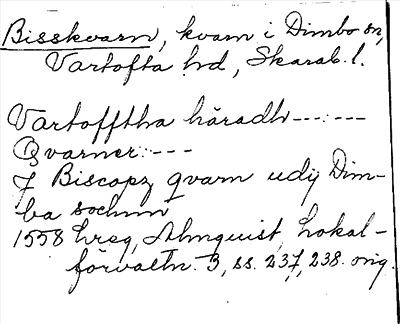 Bisskvarn, kvarn i Dimbo sn,
Vartofta hd, Skarab. l.
Vartofftha häradh---:---
Qvarner:---
J Biscopz qvarn udij Dim-
ba sochnn
1558 hreg, Almquist, Lokal-
förvaltn. 3, ss. 237, 238. orig.